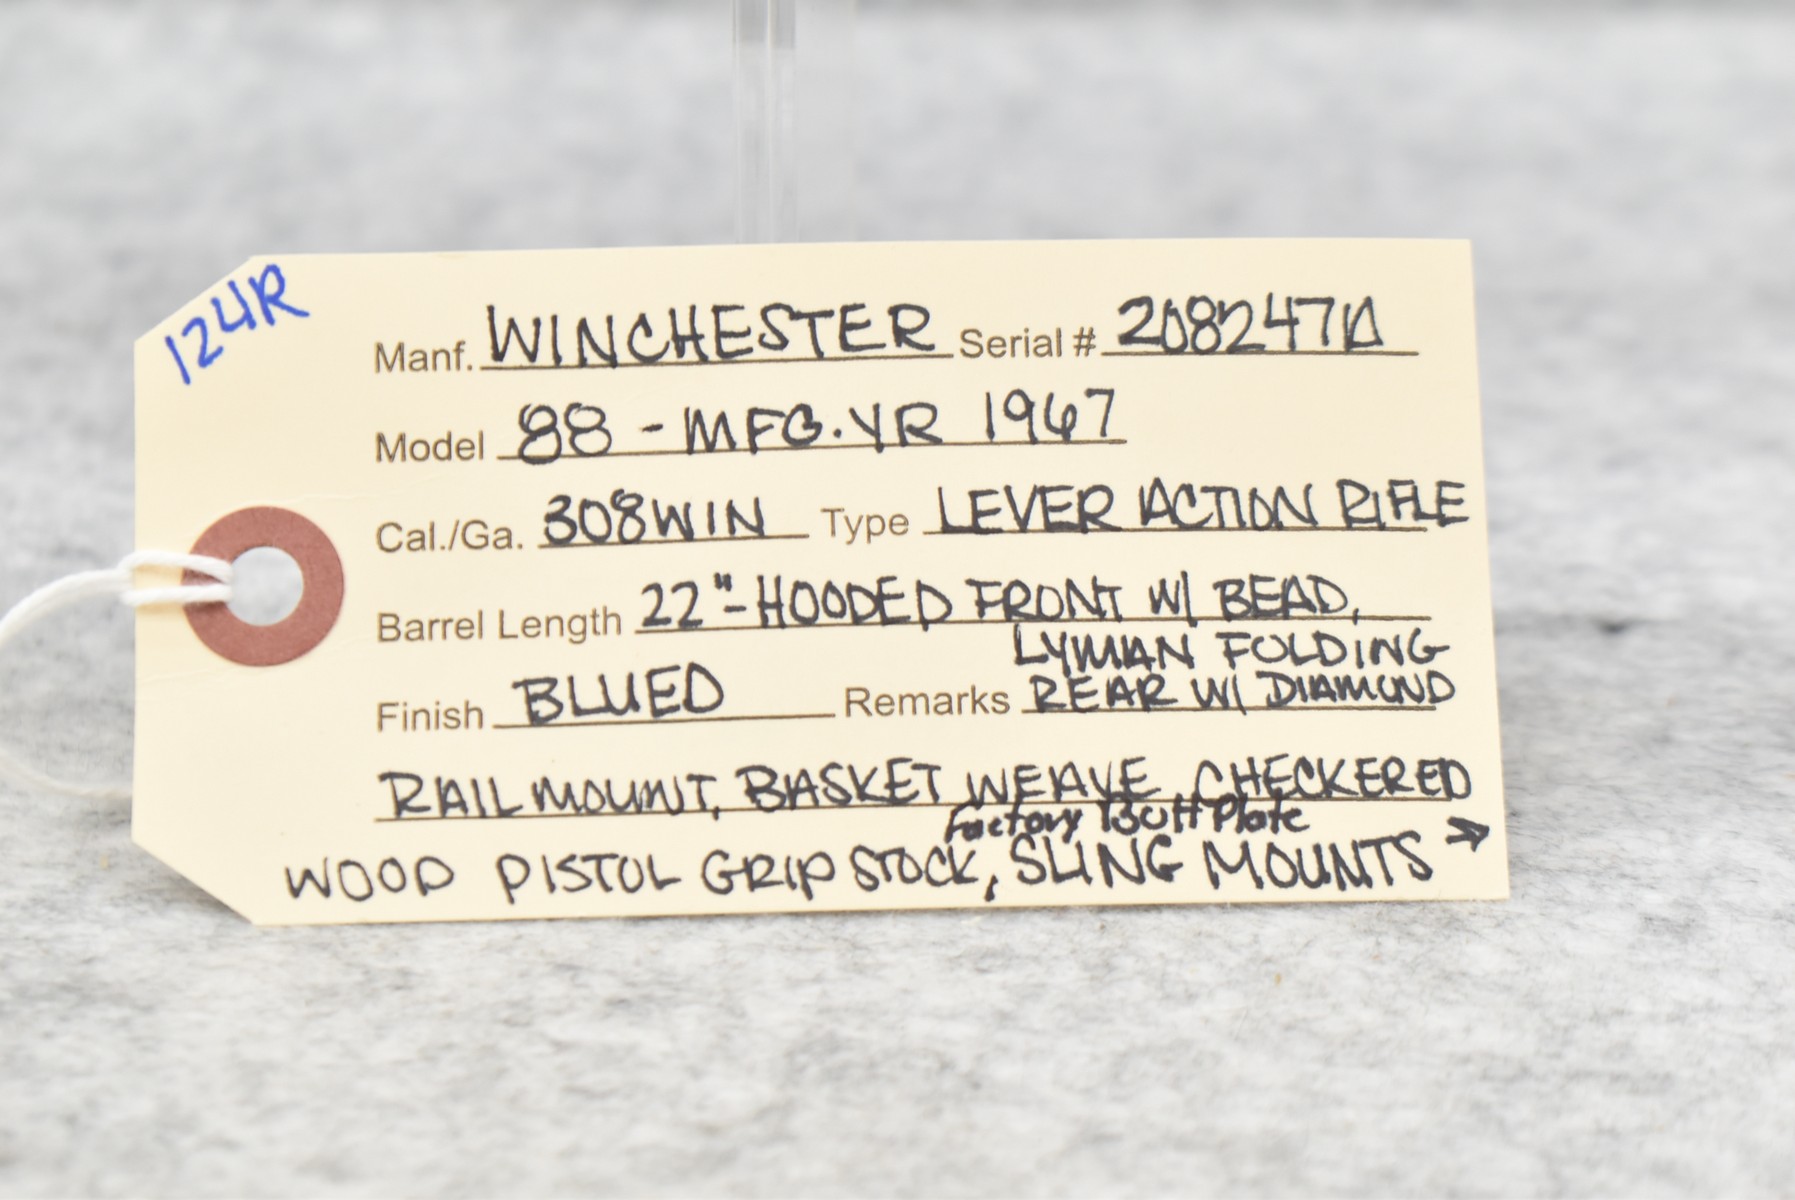 124R
Manf. WINCHESTER Serial # 208247A
Model 88 - MFG. YR 1967
Cal./Ga. 308WIN Type LEVER ACTION RIFLE
Barrel Length 22"-HOODED FRONT W/ BEAD,
LYMAN FOLDING
Finish BLUED Remarks REAR W/ DIAMOND
RAIL MOUNT, BASKET WEAVE CHECKERED
Factory Butt Plate
WOOD PISTOL GRIP STOCK, SLING MOUNTS →